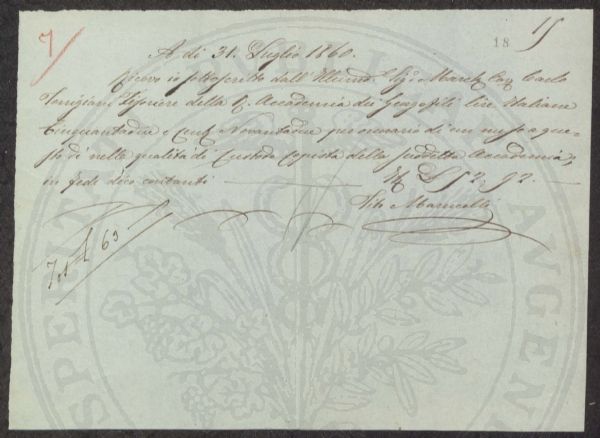 7
18
15
A di 31. Luglio 1860.
Ricevo io sottoscritto dall'Illmo. Sigr. March. Cav. Carlo
Torrigiani, Tesoriere della R. Accademia dei Georgofili lire Italiane
Cinquantadue e Cent. Novantadue per onorario di un mese a que-
sto dì nella qualità di Custode Copista della suddetta Accademia,
in fede dico contanti L 52. 92.
Vito
63